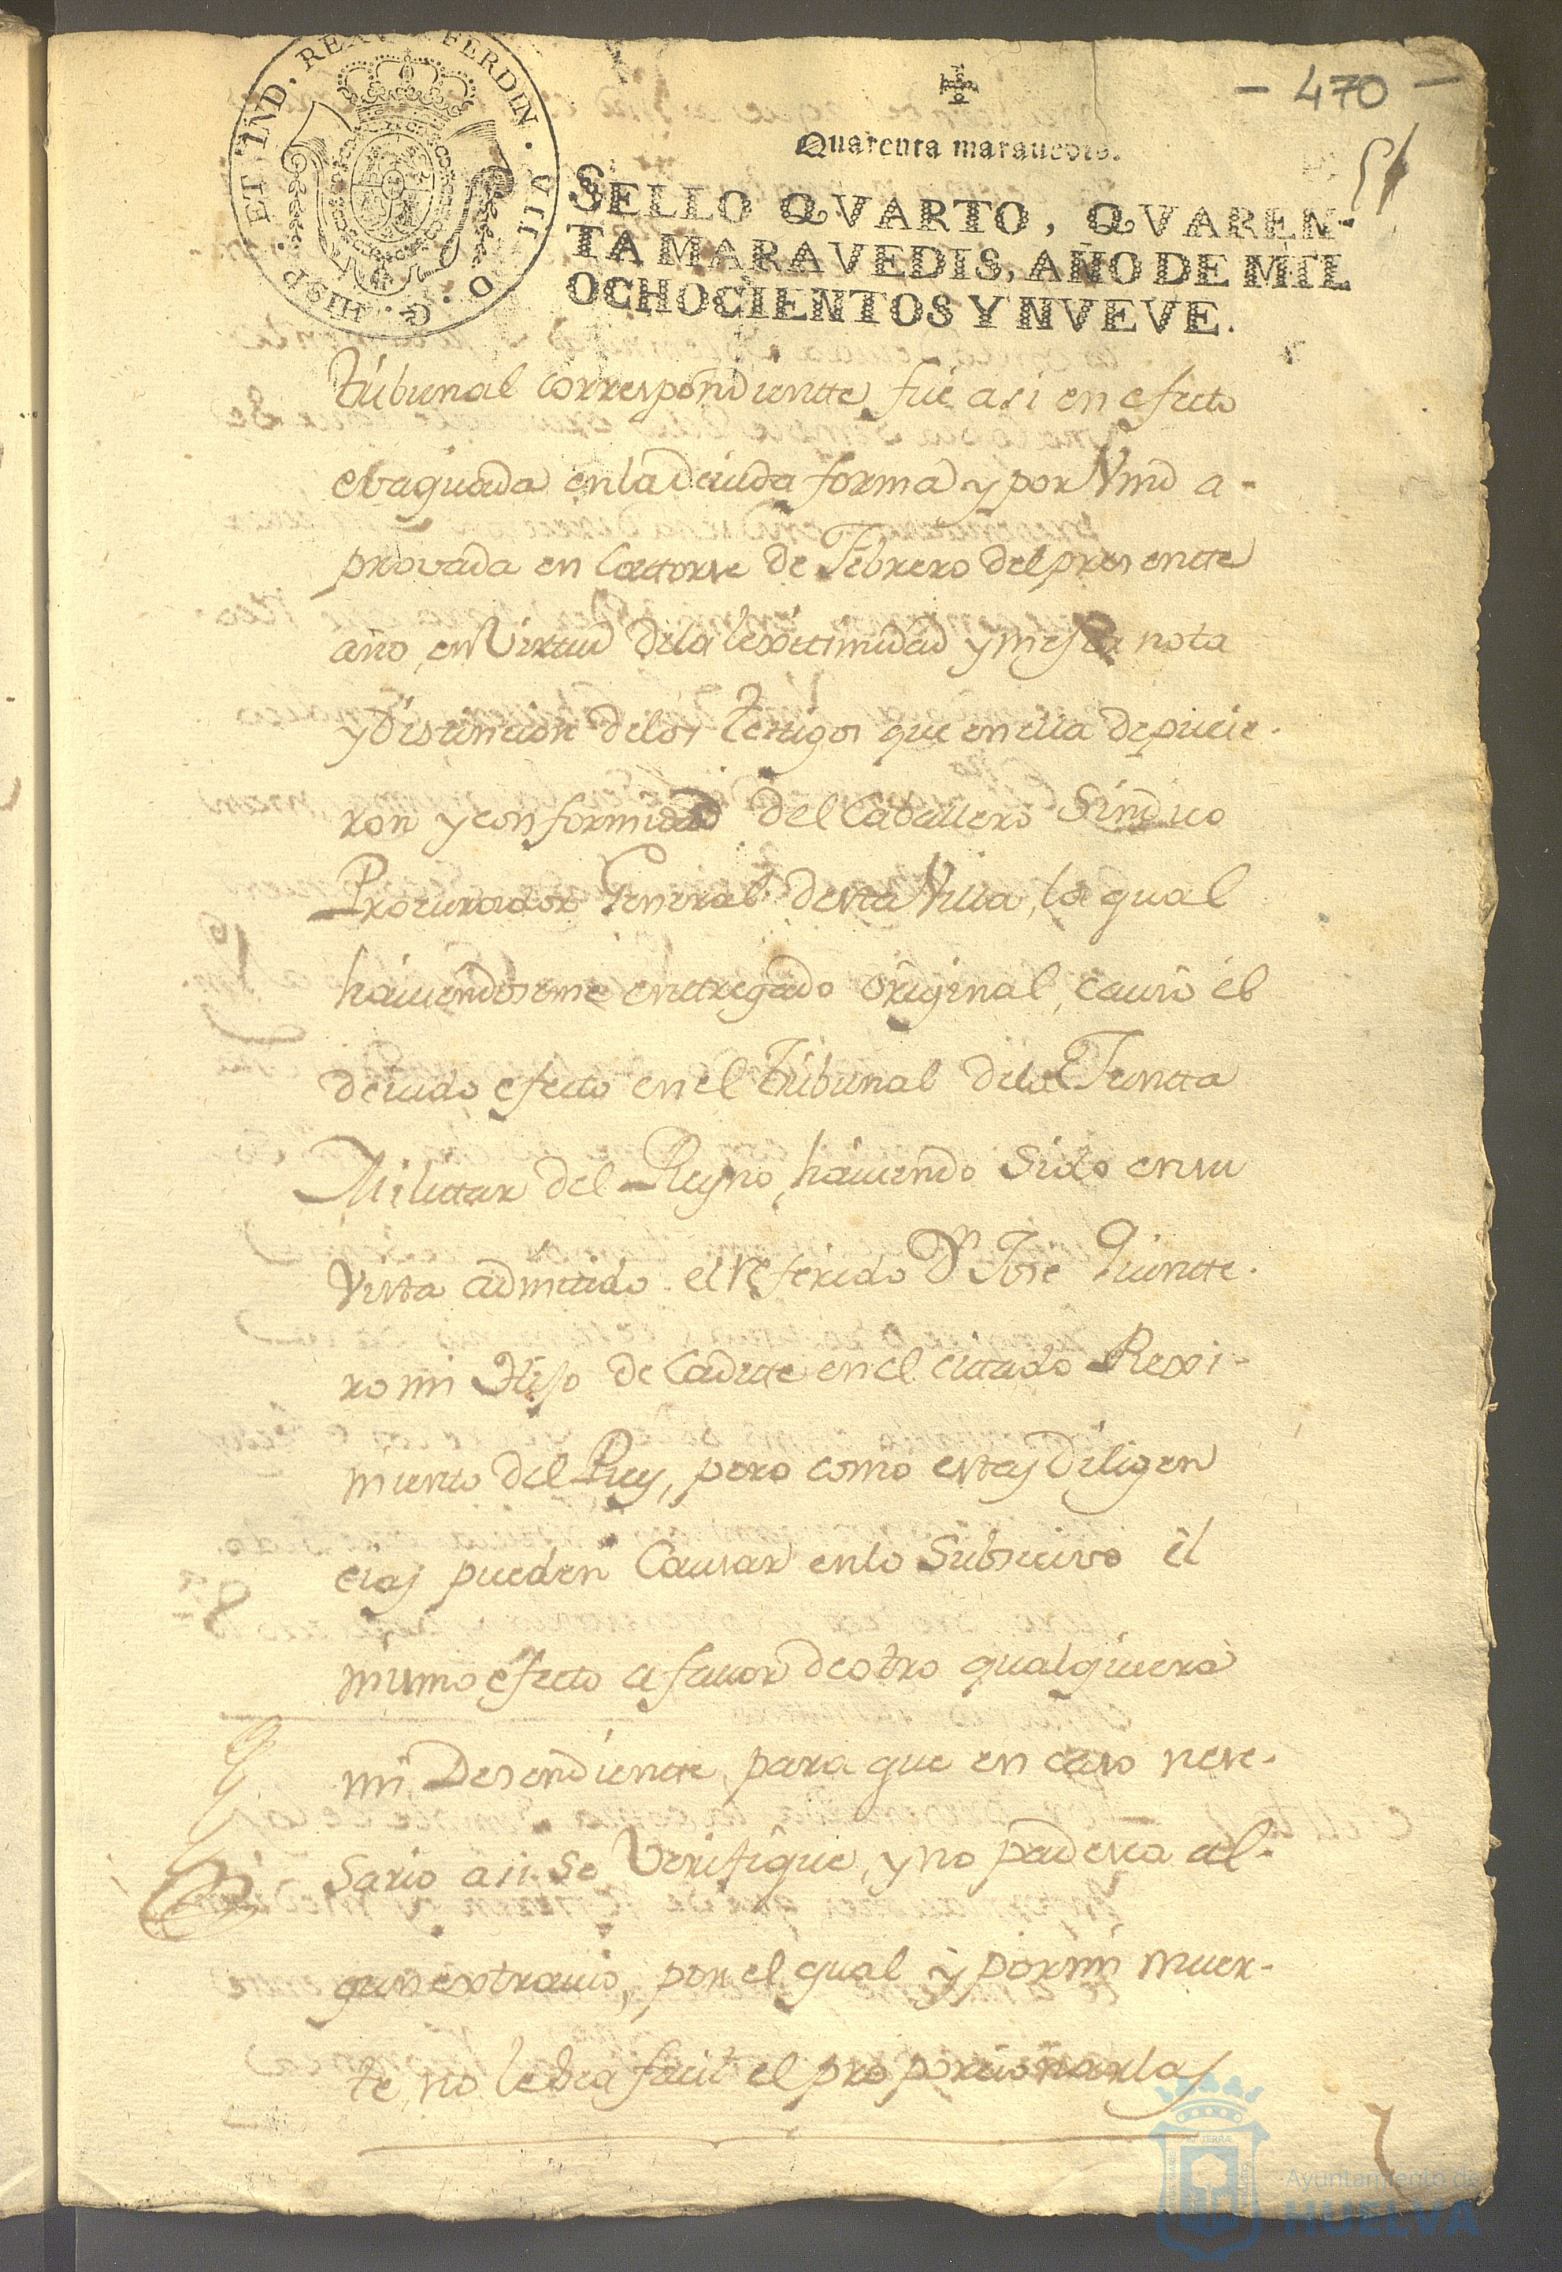 - 470 -
51
FERDIN. VII. D. G. HISP. ET IND. REX
Quarenta maravedis.
SELLO QVARTO, QVAREN-
TA MARAVEDIS, AÑO DE MIL
OCHOCIENTOS Y NVEVE.
tribunal correspondientte, fue asi en efecto
ebaquada en la devida forma y por Vmd a-
provada en Cattorse de Febrero del presentte
año, en Virtud de la lexitimidad y mejor nota
y Distincion de los testigos que en ella depucie-
ron y conformidad del Caballero Sindico
Procurador General desta Villa, la qual
haviendoseme enttregado original, causó el
devido efecto en el tribunal de la Juntta
Milittar del Reyno, haviendo Sido en su
Vista admitido el referido Dn. Jose Quintte-
ro mi Hijo de Cadette en el cittado Rexi-
miento del Rey, pero como estas Diligen
cias pueden Causar en lo Subsecivo el
mismo efecto a favor de otro qualquiera
mi Desendientte, para que en caso nese-
sario asi se Verifique, y no padesca al-
gun extravio, por el qual y por mi muer-
te, no le sea facil el proporcionarlas
Ayuntamiento de
HUELVA